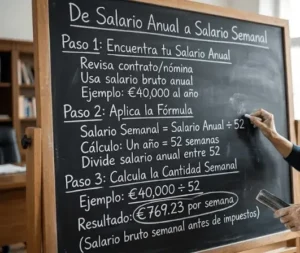 De Salario Anual a Salario Semanal
Paso 1: Encuentra tu Salario Anual
Revisa contrato/nómina
Usa salario bruto anual
Ejemplo: €40,000 al año
Paso 2: Aplica la Fórmula
Salario Semanal = Salario Anual ÷ 52
Cálculo: Un año = 52 semanas
Divide salario anual entre 52
Paso 3: Calcula la Cantidad Semanal
Ejemplo: €40,000 ÷ 52
Resultado: €769.23 por semana
(Salario bruto semanal antes de impuestos)